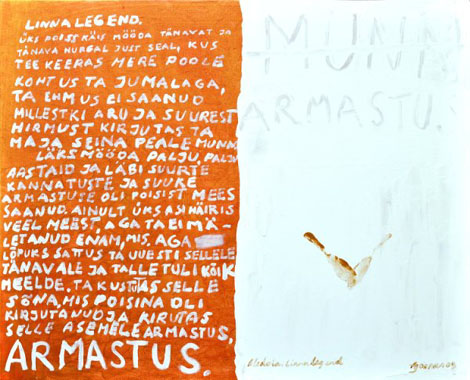 LINNALEGEND.
ÜKS POISS KÄIS MÖÖDA TÄNAVAT JA
TÄNAVA NURGAL JUST SEAL, KUS
TEE KEERAS MERE POOLE
KOHTUS TA JUMALAGA,
TA EHMUS EI SAANUD
MILLESTKI ARU JA SUUREST
HIRMUST KIRJUTAS TA
MAJA SEINA PEALE MUNN.
LÄKS MÖÖDA PALJU, PALJU
AASTAID JA LÄBI SUURTE
KANNATUSTE JA SUURE
ARMASTUSE OLI POISIST MEES
SAANUD. AINULT ÜKS ASI HÄIRIS
VEEL MEEST, AGA TA EI MÄ
LETANUD ENAM, MIS. AGA
LÕPUKS SATTUS TA UUESTI SELLELE
TÄNAVALE JA TALLE TULI KÕIK
MEELDE. TA KUSTUTAS SELLE
SÕNA, MIS POISINA OLI
KIRJUTANUD JA KIRUTAS
SELLE ASEMELE ARMASTUS,
ARMASTUS.
MUNN
ARMASTU.
Linnalegend